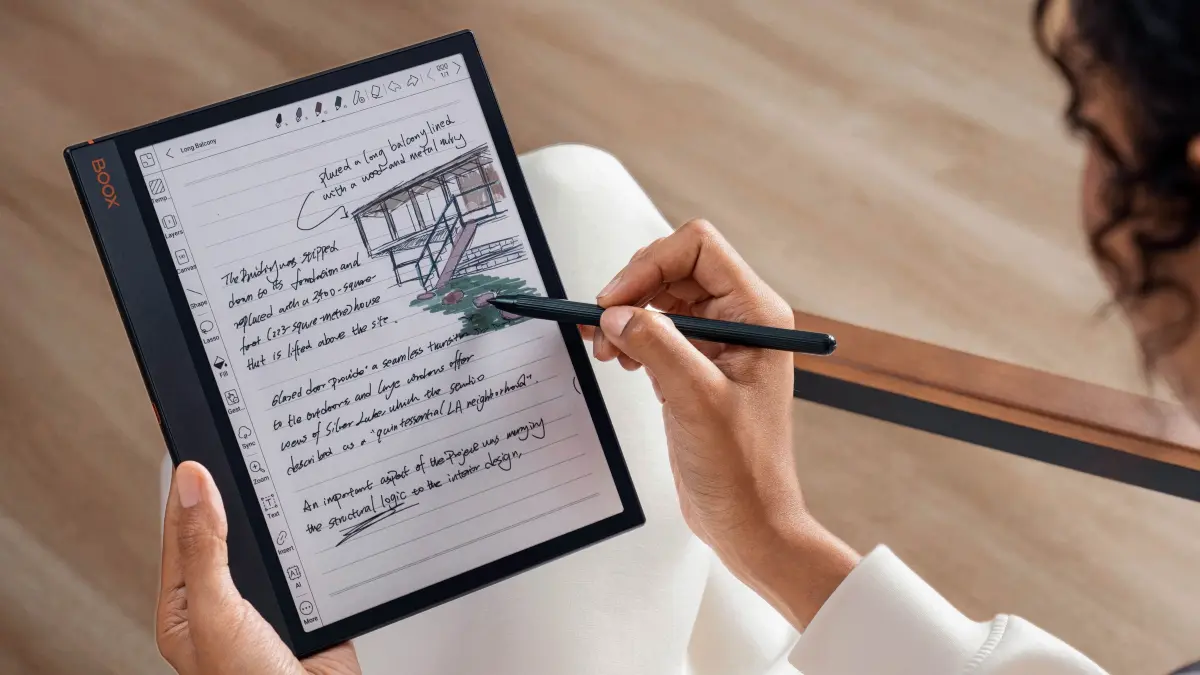 BOOX
Long Balcony
1/1
Temp..
Layers
Canvas
Shape
Lasso
Fill
Gest..
Sync
Zoom
Text
Insert
AI
More
placed a long balcony lined
with a wood and metal
The Building was stripped
down to its foundation and
replaced with a 2400-square-
foot (223-square-metre) house
that is lifted above the site.
Glazed door provide a seamless
to the outdoors and large windows offer
views of Silver Lake which the
described as a "quintessential LA neighborhood".
An important aspect of the Project was merging
the structural logic to the interior design,